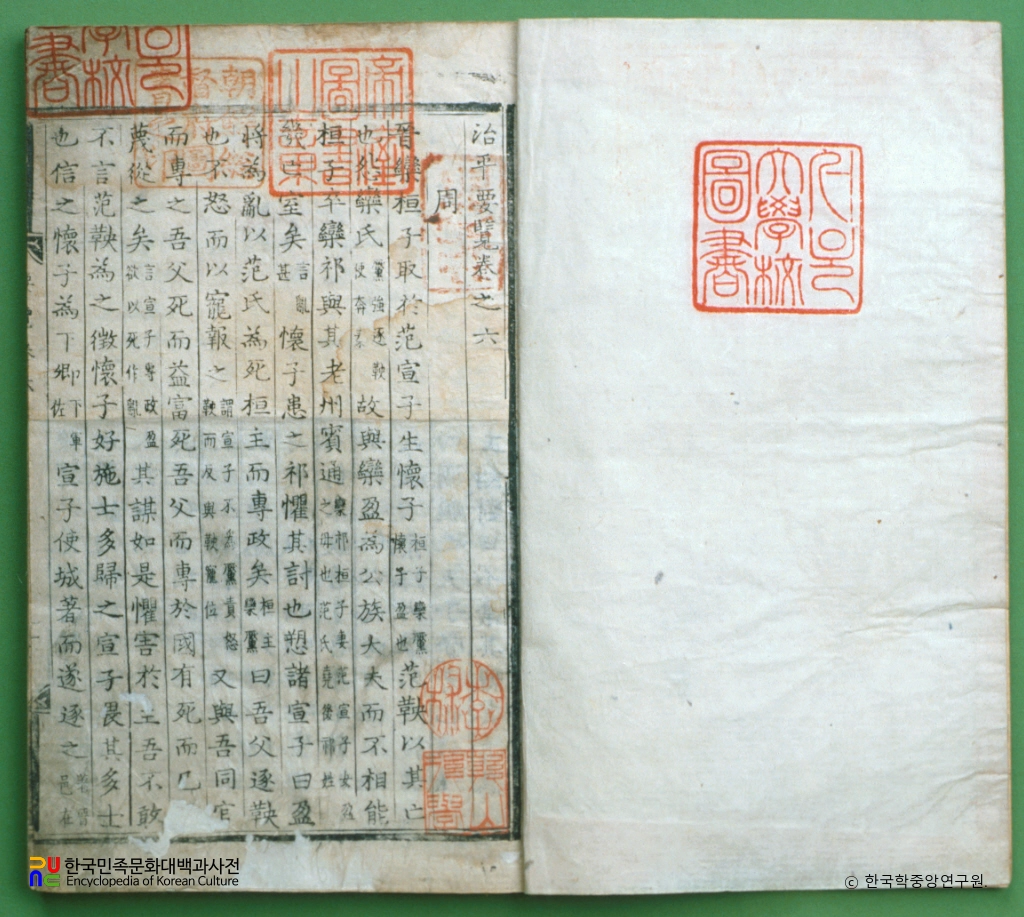 治平要覽卷之六
周
晋欒桓子取於范宣子生懷子桓子欒黶懷子盈也范鞅以其亡
也怨欒氏黶強逐鞅使奔秦故與欒盈為公族大夫而不相能
桓子卒欒祁與其老州賓通欒祁桓子妻范宣子女盈之母也范氏堯後祁姓
幾亡室矣言亂甚懷子患之祁懼其討也愬諸宣子曰盈
將為亂以范氏為死桓主而專政矣桓主欒黶曰吾父逐鞅
也不怒而以寵報之謂宣子不為黶責怒鞅而反與鞅寵位又與吾同官
而專之吾父死而益富死吾父而專於國有死而已
蔑從之矣言宣子專政盈欲以死作難其謀如是懼害於主吾不敢
不言范鞅為之徵懷子好施士多歸之宣子畏其多士
也信之懷子為下卿下軍佐宣子使城著而遂逐之著晉邑在
大學校
圖書
한국민족문화대백과사전
Encyclopedia of Korean Culture
ⓒ 한국학중앙연구원.